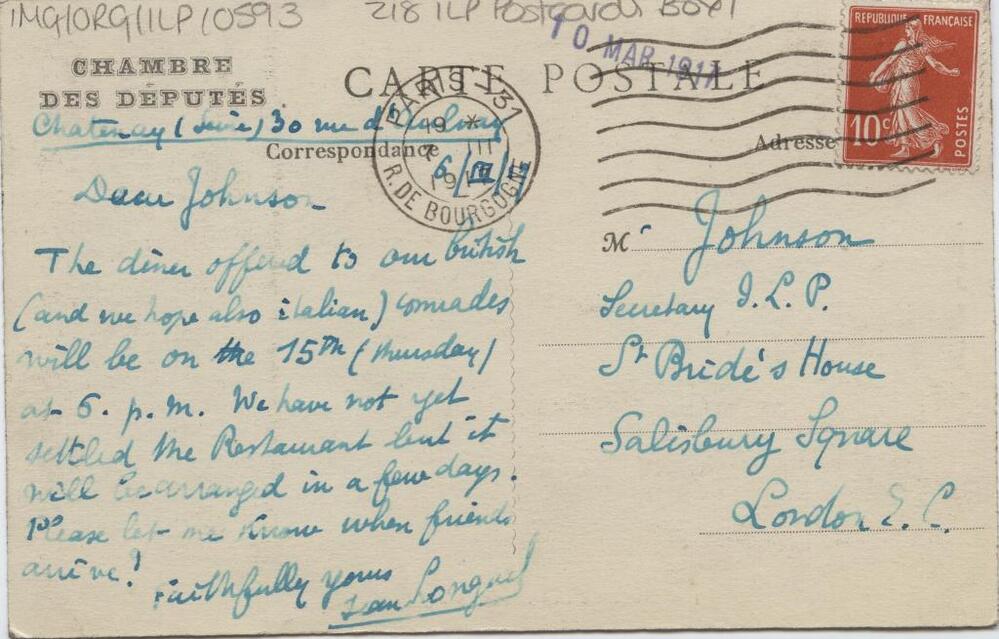 IMG/ORG/ILP/0593 218 ILP Postcards Box 1
10 MAR 1917
CHAMBRE
DES DÉPUTÉS
CARTE POSTALE
PARIS 31
R. DE BOURGOGNE
RÉPUBLIQUE FRANÇAISE
10c
POSTES
Chatenay (Seine) 30 rue d'
Correspondance
Adresse
6/III/
Dear Johnson
The diner offered to our british
(and we hope also italian) comrades
will be on the 15th (thursday)
at 6. p.m. We have not yet
settled the Restaurant but it
will be arranged in a few days.
Please let me know when friends
arrive!
Faithfully yours
Jean Longuet
Mr Johnson
Secretary I.L.P.
St Bride's House
Salisbury Square
London E.C.